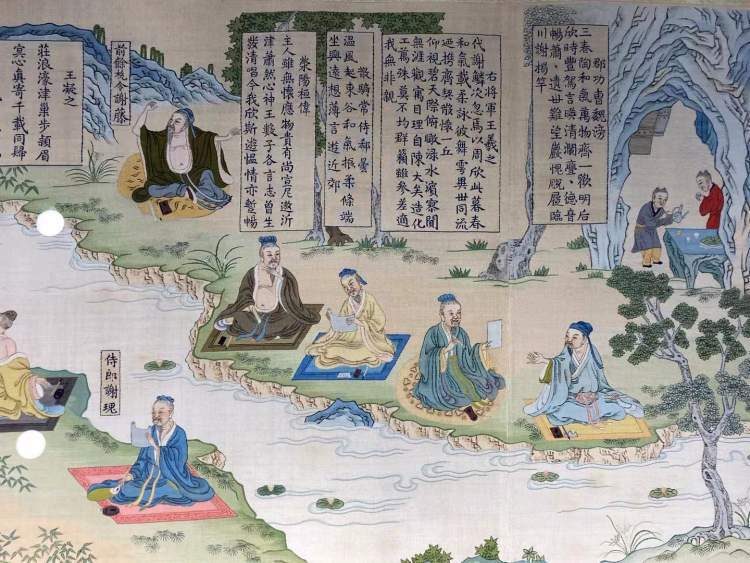 郡功曹魏滂
三春陶和氣萬物齊一歡明后
欣時豐駕言映清瀾亹、德音
暢蕭、遺世難望巖愧脫屣臨
川謝揭竿
右將軍王羲之
代謝鱗次忽焉以周欣此暮春
和氣載柔詠彼舞雩異世同流
迺携齊契散懷一丘
仰視碧天際俯瞰淥水濱寥闃
無涯觀寓目理自陳大矣造化
工萬殊莫不均群籟雖參差適
我無非親
散騎常侍郗曇
溫風起東谷和氣振柔條端
坐興遠想薄言遊近郊
滎陽桓偉
主人雖無懷應物貴有尚宣尼遨沂
津蕭然心神王數子各言志曾生
發清唱今我欣斯遊慍情亦暫暢
前餘杭令謝滕
王凝之
莊浪濠津巢步潁湄
冥心真寄千載同歸
侍郎謝瑰